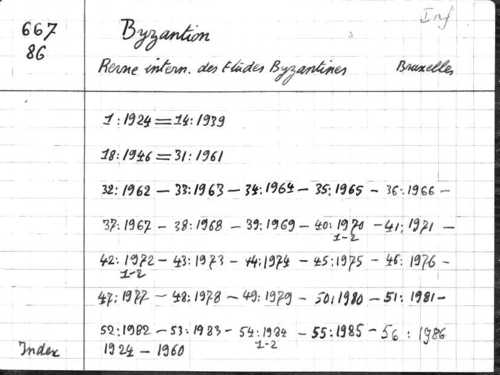 Inf
667
86
Byzantion
Revue intern. des Etudes Byzantines Bruxelles
1:1924=14:1939
18:1946=31:1961
32:1962 – 33:1963 – 34:1964 – 35:1965 – 36:1966 –
37:1967 – 38:1968 – 39:1969 – 40:1970 – 41:1971 –
1-2
42:1972 – 43:1973 – 44:1974 – 45:1975 – 46:1976 –
1-2
47:1977 – 48:1978 – 49:1979 – 50:1980 – 51:1981 –
52:1982 – 53:1983 – 54:1984 – 55:1985 – 56:1986
1-2
Index 1924 – 1960